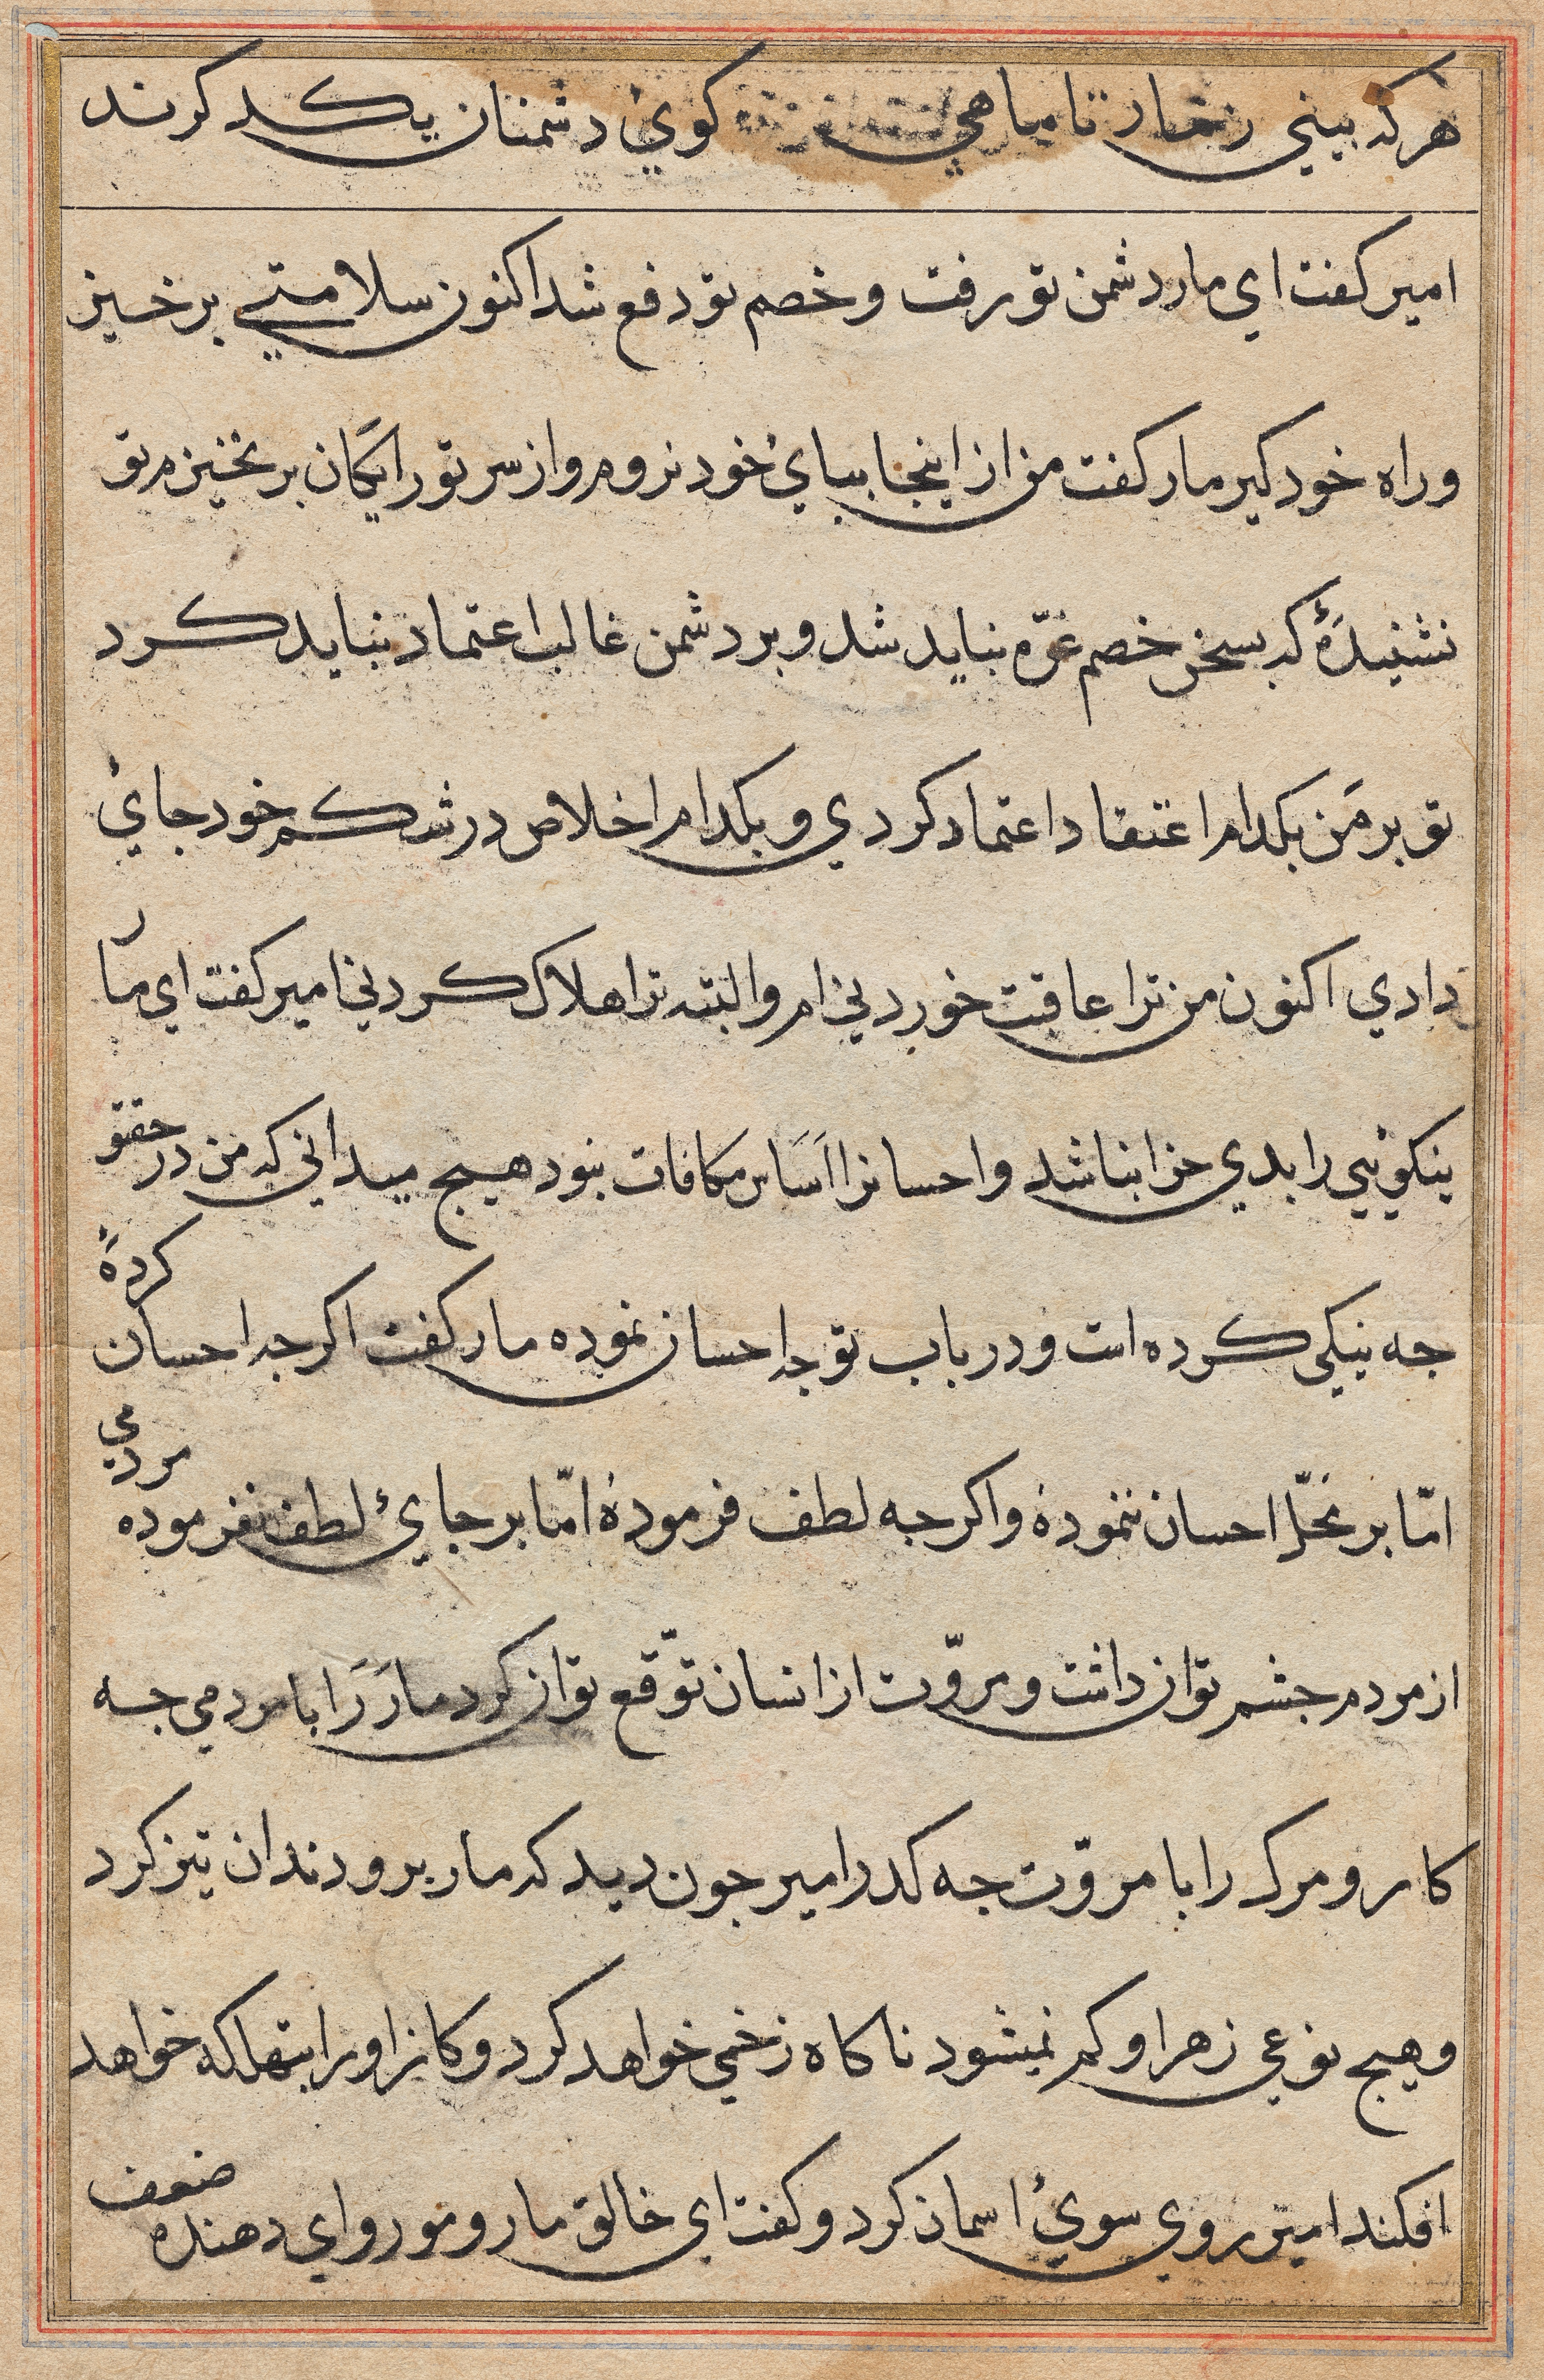 هرکه بیني ز مار تا ماهي کويْ دشمنان یکد کرند
امیر کفت اي مار دشمن تو رفت و خصم تو دفع شد اکنون سلامتي برخیز
وراه خود کیر مار کفت من از اینجا ببايْ خود نروم و از سر تو رایکان برنخیزم تو
نشنیدهٔ که بسخن خصم غرّه نباید شد و بر دشمن غالب اعتماد نباید کرد
تو بر من بکدام اعتقاد اعتماد کردي و بکدام اخلاص در شکم خود جايْ
دادي اکنون من ترا عاقبت خوردني ام والبته ترا هلاک کردني امیر کفت اي مار
نیکوئیي را بدي جزا نباشد و احسانرا اَسَاس مکافات نبود هیچ میداني که من در حق تو
جه نیکي کرده است و در باب تو جه احسان نموده مار کفت اکرجه احسان کردهٔ
امّا بر محلّ احسان ننمودهٔ و اکرجه لطف فرمودهٔ امّا بر جايْ لطف نفرموده مردمي
از مردم جشم توان داشت و مروّت از انسان توقّع توان کرد مارَ رَا با مردمي جه
کار و مرک را با مروّت جه کدر امیر جون دید که مار برو دندان تیز کرد
و هیچ نوعي زهر او کم نمیشود ناکاه زخمي خواهد کرد و کانرا و را بتهلکه خواهد
افکند امیر روي سويْ اسمان کرد و کفت اي خالق مار و مور و اي دهنده ضعف